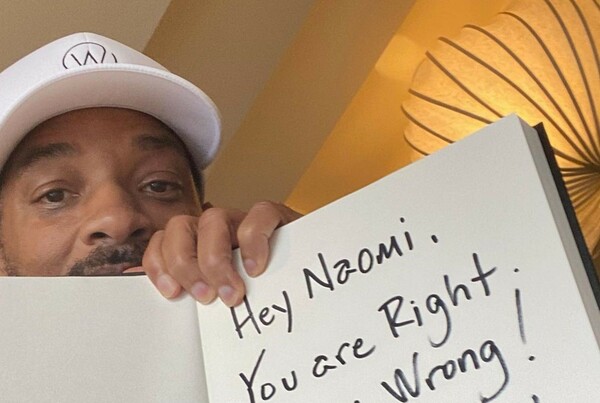 W
Hey Naomi.
You are Right.
Wrong!